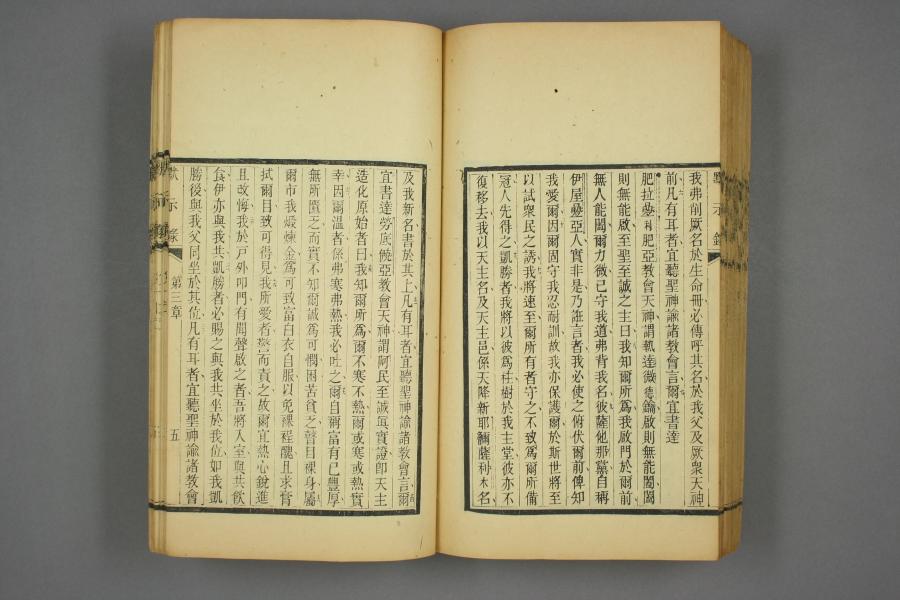 默示錄
我弗削厥名於生命冊必傳呼其名於我父及厥衆天神
前凡有耳者宜聽聖神諭諸教會言爾宜書達
肥拉
肥亞教會天神謂執達微鑰啟則無能闔闔
則無能啟至聖至誠之主曰我知爾所爲我啟門於爾前
無人能闔爾力微已守我道弗背我名彼薩他那黨自稱
伊屋亞人實非是乃誑言者我必使之俯伏爾前俾知
我愛爾因爾固守我忍耐訓故我亦保護爾於斯世將至
以試衆民之誘我將速至爾所有者守之不致爲爾所備
冠人先得之凱勝者我將以彼爲柱樹於我主堂彼亦不
復移去我以天主名及天主邑係天降新耶薩利木名
及我新名書於其上凡有耳者宜聽聖神諭諸教會言爾
宜書達勞底亞教會天神謂阿民至誠實證卽天主
造化原始者曰我知爾所爲爾不寒不熱爾或寒或熱實
幸因爾溫者係弗寒弗熱我必吐之爾自稱富有已豐厚
無所匱乏而實不知爾誠爲可憫困苦貧乏瞽目裸身屬
爾市我煅煉金爲可致富白衣自服以免裸裎醜且求膏
拭爾目致可得見我所愛者而責之故爾宜熱心銳進
且改悔我於戶外叩門有聞聲啟之者吾將入室與共飲
食伊亦與我共凱勝者必賜之與我共坐於我位如我凱
勝後與我父同坐於其位凡有耳者宜聽聖神諭諸教會
默示錄
第三章
五